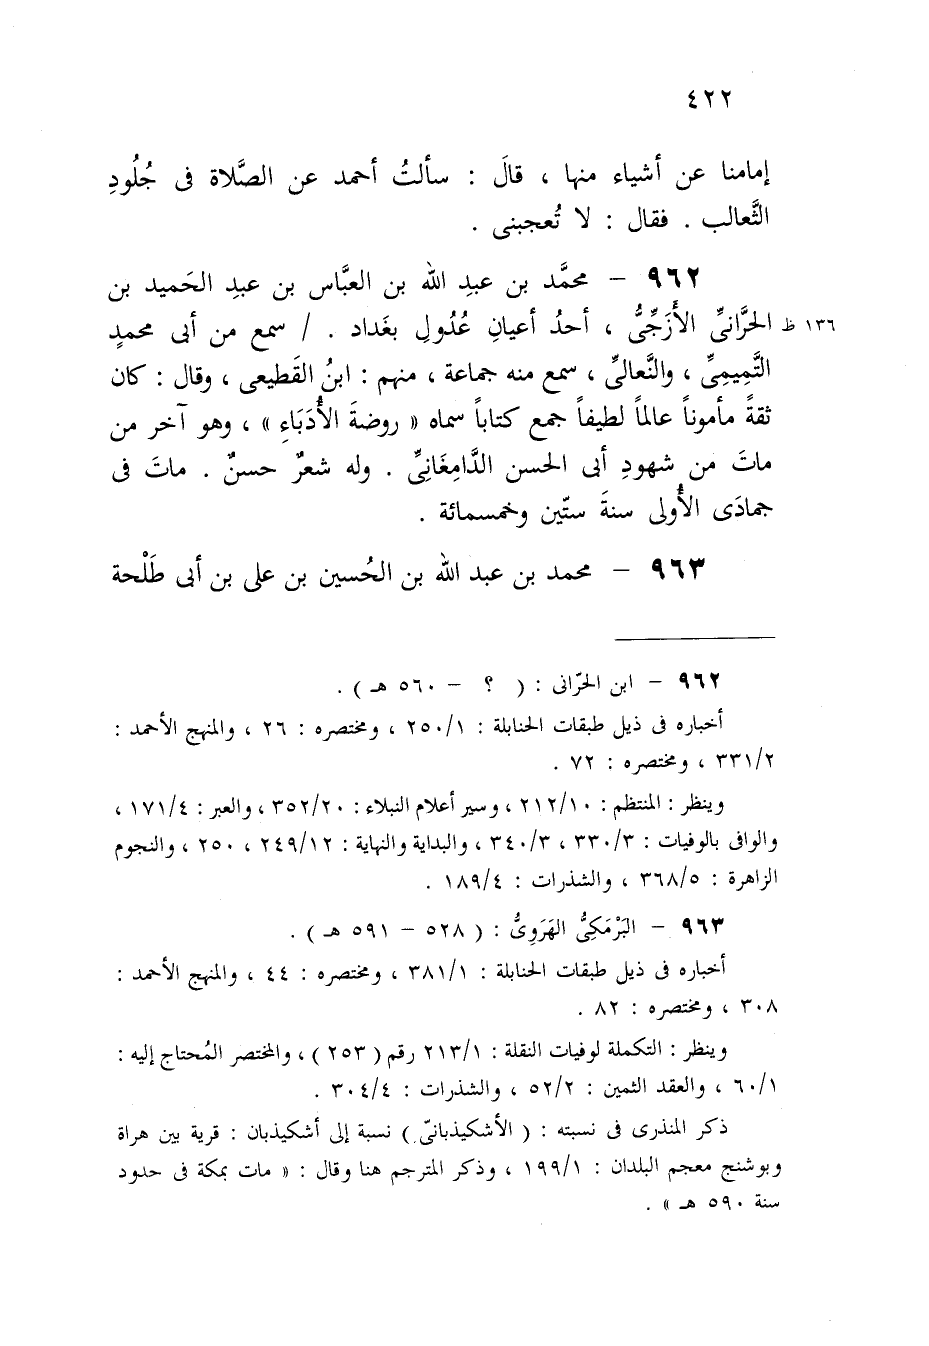 ٤٢٢
إمامنا عن أشياء منها ، قالَ : سألتُ أحمد عن الصَّلاة فى جُلُودِ
الثَّعالب . فقال : لا تُعجبنى .
٩٦٢ – محمَّد بن عبدِ الله بن العبَّاس بن عبدِ الحَميد بن
الحَرَّانىِّ الأَزَجِّىُّ ، أحدُ أعيانِ عُدُولِ بغداد . / سمع من أبى محمدٍ ١٣٦ ظ
التَّمِيمِىِّ ، والنَّعالىِّ ، سمع منه جماعة ، منهم : ابنُ القَطيعى ، وقال : كان
ثقةً مأموناً عالماً لطيفاً جمع كتاباً سماه « روضةَ الأُدَبَاءِ » ، وهو آخر من
ماتَ من شهودِ أبى الحسن الدَّامِغَانِىِّ . وله شعرٌ حسنٌ . ماتَ فى
جمادَى الأُولى سنةَ ستّين وخمسمائة .
٩٦٣ – محمد بن عبد الله بن الحُسين بن على بن أبى طَلْحة
٩٦٢ – ابن الحرّانى : ( ؟ – ٥٦٠ هـ ) .
أخباره فى ذيل طبقات الحنابلة : ٢٥٠/١ ، ومختصره : ٢٦ ، والمنهج الأحمد :
٣٣١/٢ ، ومختصره : ٧٢ .
وينظر : المنتظم : ٢١٢/١٠ ، وسير أعلام النبلاء : ٣٥٢/٢٠ ، والعبر : ١٧١/٤ ،
والوافى بالوفيات : ٣٣٠/٣ ، ٣٤٠/٣ ، والبداية والنهاية : ٢٤٩/١٢ ، ٢٥٠ ، والنجوم
الزاهرة : ٣٦٨/٥ ، والشذرات : ١٨٩/٤ .
٩٦٣ – البَرْمَكِىُّ الهَرَوِىُّ : ( ٥٢٨ – ٥٩١ هـ ) .
أخباره فى ذيل طبقات الحنابلة : ٣٨١/١ ، ومختصره : ٤٤ ، والمنهج الأحمد :
٣٠٨ ، ومختصره : ٨٢ .
وينظر : التكملة لوفيات النقلة : ٢١٣/١ رقم ( ٢٥٣ ) ، والمختصر المُحتاج إليه :
٦٠/١ ، والعقد الثمين : ٥٢/٢ ، والشذرات : ٣٠٤/٤ .
ذكر المنذرى فى نسبته : ( الأشكيذبانىّ ) نسبة إلى أشكيذبان : قرية بين هراة
وبوشنج معجم البلدان : ١٩٩/١ ، وذكر المترجم هنا وقال : « مات بمكة فى حدود
سنة ٥٩٠ هـ » .